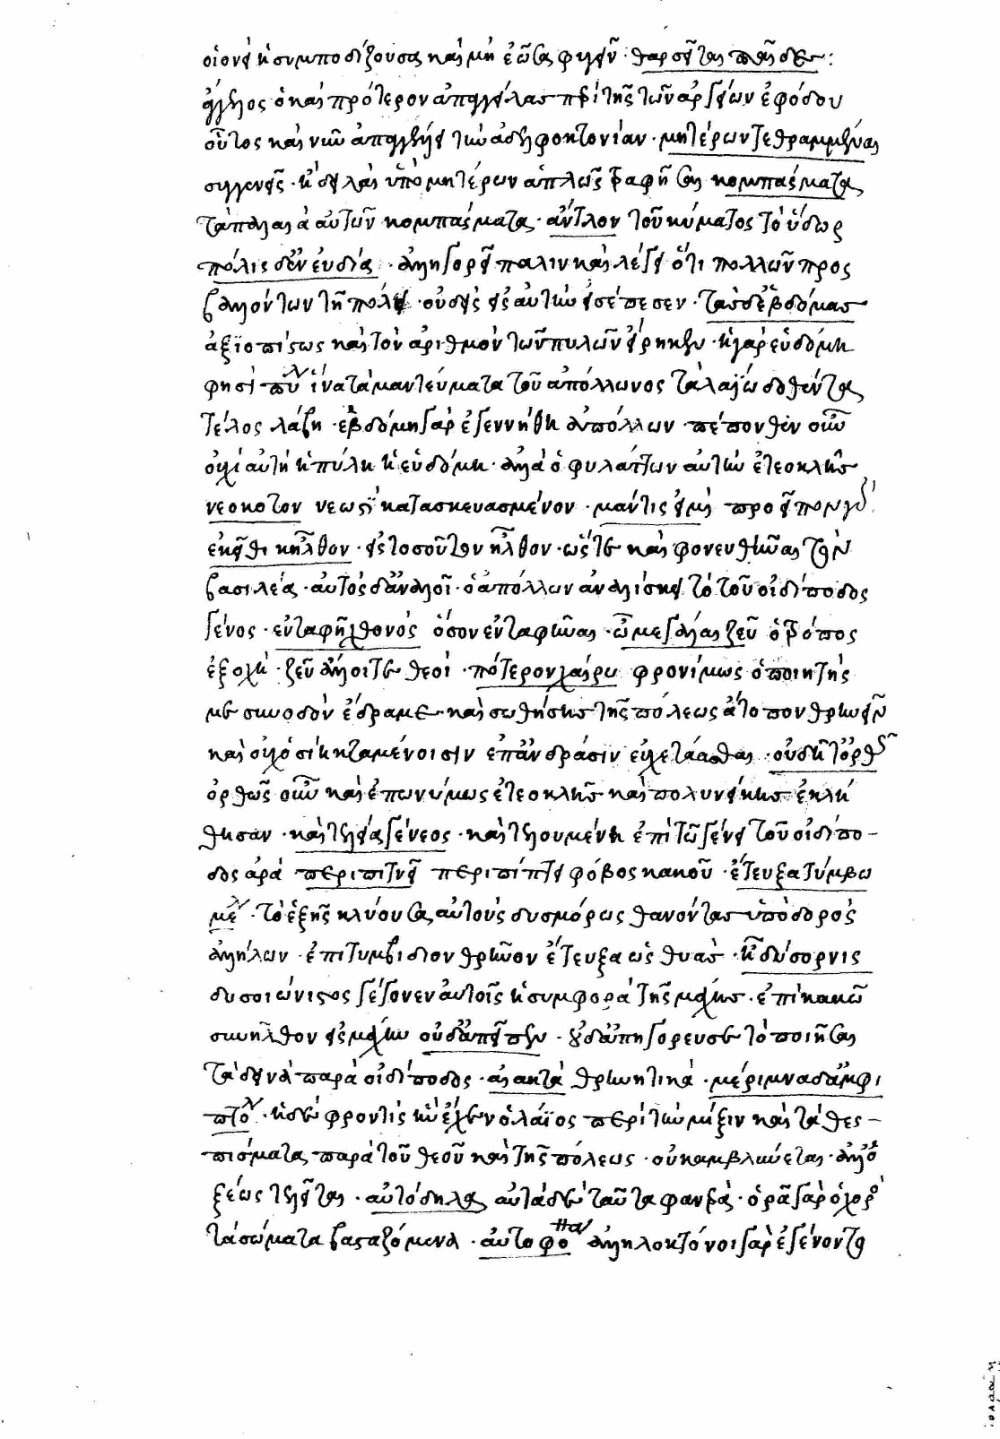 οἱονεὶ ἡ συμποδίζουσα καὶ μὴ ἐῶσα φυγεῖν · θαρσεῖτε παῖδες :
ἄγγελος ὁ καὶ πρότερον ἀπαγγείλας περὶ τῆς τῶν ἀργείων ἐφόδου
οὗτος καὶ νῦν ἀπαγγέλλει τὴν ἀδελφοκτονίαν · μητέρων τεθραμμέναι
συγγενεῖς · ὑπὸ μητέρων ἁπλῶς τραφεῖσαι κομπάσματα
τὰ παλαιὰ αὐτῶν κομπάσματα · ἄντλον τοῦ κύματος τὸ ὕδωρ
πόλις δ' ἐν εὐδίᾳ · ἀλληγορεῖ πάλιν καὶ λέγει ὅτι πολλῶν προσ
βαλόντων τῇ πόλει · οὐδεὶς εἰς αὐτὴν εἰσέπεσεν · τὰς δ' ἑβδόμας
ἀξιοπίστως καὶ τὸν ἀριθμὸν τῶν πυλῶν εἴρηκεν · ἡ γὰρ ἑβδόμη
φησὶ πύλη ἵνα τὰ μαντεύματα τοῦ ἀπόλλωνος τὰ λαΐῳ δοθέντα
τέλος λάβῃ · ἑβδόμῃ γὰρ ἐγεννήθη ἀπόλλων · πέπονθεν οὖν
οὐχὶ αὐτὴ ἡ πύλη ἡ ἑβδόμη · ἀλλὰ ὁ φυλάττων αὐτὴν ἐτεοκλῆς
νεόκοτον νεωστὶ κατασκευασμένον · μάντις εἰμὶ
ἐκεῖθι κῆλθον · εἰς τοσοῦτον ἦλθον · ὥστε καὶ φονευθῆναι τὸν
βασιλέα · αὐτὸς δ' ἀναλοῖ · ὁ ἀπόλλων ἀναλίσκει τὸ τοῦ οἰδίποδος
γένος · ἐν ταφῇ χθονὸς ὅσον ἐνταφῆναι · ὦ μεγάλε ζεῦ ὁ τρόπος
ἐξοχῇ · ζεῦ ἄλλοι τε θεοὶ · πότερον χαίρω φρονίμως ὁ ποιητὴς
μέσην ὁδὸν ἔδραμε · καὶ σωθείσης τῆς πόλεως ἄτοπον θρηνεῖν
καὶ οὐχ ὁσίη κταμένοισιν ἐπ' ἀνδράσιν εὐχετάασθαι · οἳ δῆτ' ὀρθῶς
ὀρθῶς οὖν καὶ ἐπωνύμως ἐτεοκλῆς καὶ πολυνείκης ἐκλή
θησαν · καὶ τελεία γένεος · καὶ τελουμένη ἐπὶ τῷ γένει τοῦ οἰδίπο-
δος ἀρά περιπιτνεῖ περιπίπτει φόβος κακοῦ · ἔτευξα τύμβῳ
μέλος · τὸ ἑξῆς κλύουσα αὐτοὺς δυσμόρως θανόντας ὑπὸ δορὸς
ἀλλήλων · ἐπιτυμβίδιον θρῆνον ἔτευξα ὡς θυιάς · ἦ δύσορνις
δυσοιώνιστος γέγονεν αὐτοῖς ἡ συμφορὰ τῆς μάχης · ἐπὶ κακῷ
συνῆλθον εἰς μάχην οὐδ' ἀπεῖπεν · οὐδ' ἀπηγόρευσε τὸ ποιῆσαι
τὰ δεινὰ παρὰ οἰδίποδος · αἰακτά θρηνητικά · μέριμνα δ' ἀμφὶ
πτόλιν · ἡ δὲ φροντὶς ἣν εἶχεν ὁ λάϊος περὶ τὴν μίξιν καὶ τὰ θεσ-
πίσματα παρὰ τοῦ θεοῦ καὶ τῆς πόλεως · οὐκ ἀμβλύνεται · ἀλλ' ὀ
ξέως τελεῖται · αὐτόδηλα αὐτὰ δὲ ταῦτα φανερά · ὁρᾷ γὰρ ὁ χορὸς
τὰ σώματα βασταζόμενα · αὐτοφόνα ἀλληλοκτόνοι γὰρ ἐγένοντο